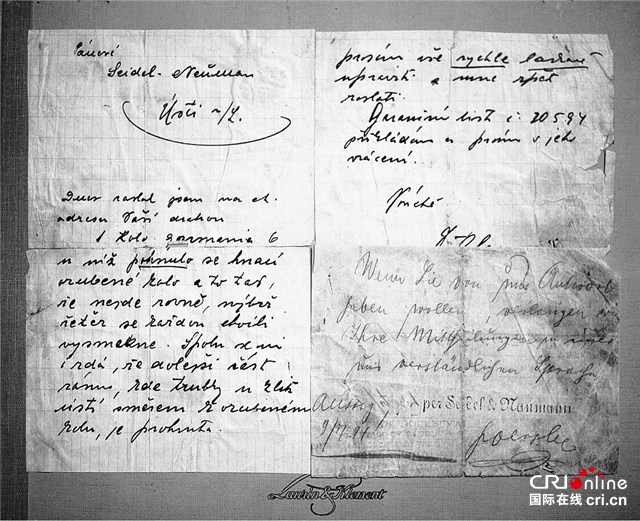 Pánové
Seidel - Neuman
Ústí n/L.
Dnes zaslal jsem na ct.
adresu Vaší drahou
1 kolo germania 6
u níž pohnulo se hnací
ozubené kolo a to tak,
že nejde rovně, nýbrž
řetěz se každou chvíli
vysmekne. Spolu se mi
i zdá, že dolejší část
rámu, kde trubky u klik
ústí směrem k ozubenému
kolu, je prohnuta.
prosím vše rychle laskavě
upraviti a mně zpět
zaslati.
Garanční list č. 20594
přikládám a prosím o jeho
vrácení.
V úctě
Wenn Sie von uns Antwort
haben wollen, verlangen wir
Ihre Mittheilung in einer
uns verständlichen Sprache
Aussig, per Seidel & Naumann
9/7 94
Laurin & Klement
CRI online
国际在线 cri.cn